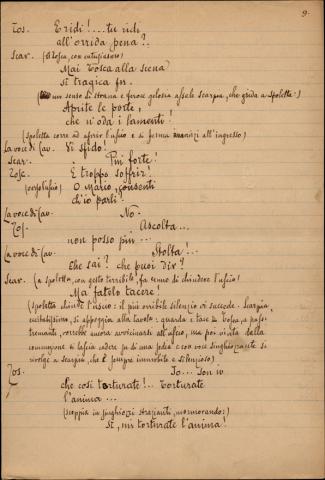 9.
Tos. E ridi!.... tu ridi
all'orrida pena?..
Scar. (a Tosca, con entusiasmo)
Mai Tosca alla scena
sì tragica fu.
un senso di strana e feroce gelosia assale Scarpia, che grida a Spoletta:)
Aprite le porte,
che n'oda i lamenti!
(Spoletta corre ad aprire l'uscio e si ferma innanzi all'ingresso)
La voce di Cav. Vi sfido!
Scar. Più forte!
Tosc. È troppo soffrir!
(all'uscio) O Mario, consenti
ch'io parli?
La voce di Cav. No.
Tos. Ascolta...
non posso più...
La voce di Cav. Stolta!..
Che sai? che puoi dir?
Scar. (a Spoletta, con gesto terribile, fa cenno di chiudere l'uscio)
Ma fatelo tacere!
(Spoletta chiude l'uscio: il più orribile silenzio vi succede. Scarpia,
si appoggia alla tavola: guarda e tace. La Tosca, a passi
tremanti, vorrebbe ancora avvicinarsi all'uscio, ma poi vinta dalla
commozione si lascia cadere su di una sedia e con voce singhiozzante si
rivolge a Scarpia, che è sempre immobile e silenzioso)
Tos. Io... Son io
che così torturate!.. Torturate
l'anima...
(scoppia in singhiozzi strazianti, mormorando:)
Sì, mi torturate l'anima!